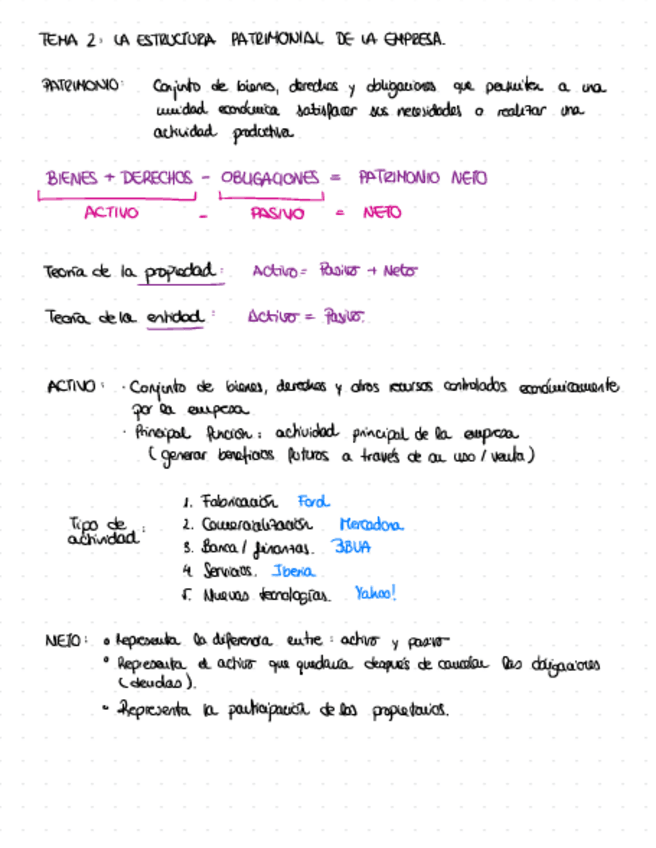 TEMA 2: LA ESTRUCTURA PATRIMONIAL DE LA EMPRESA.
PATRIMONIO: Conjunto de bienes, derechos y obligaciones que permiten a una
unidad económica satisfacer sus necesidades o realizar una
actividad productiva
BIENES + DERECHOS - OBLIGACIONES = PATRIMONIO NETO
ACTIVO - PASIVO = NETO
Teoría de la propiedad: Activo = Pasivo + Neto
Teoría de la entidad: Activo = Pasivo.
ACTIVO: · Conjunto de bienes, derechos y otros recursos controlados económicamente
por la empresa
· Principal función: actividad principal de la empresa
(generar beneficios futuros a través de su uso / venta)
Tipo de actividad:
1. Fabricación Ford
2. Comercialización Mercadona
3. Banca / finanzas. BBVA
4. Servicios. Iberia
5. Nuevas tecnologías. Yahoo!
NETO: • Representa la diferencia entre: activo y pasivo
• Representa el activo que quedaría después de cancelar las obligaciones
(deudas).
• Representa la participación de los propietarios.